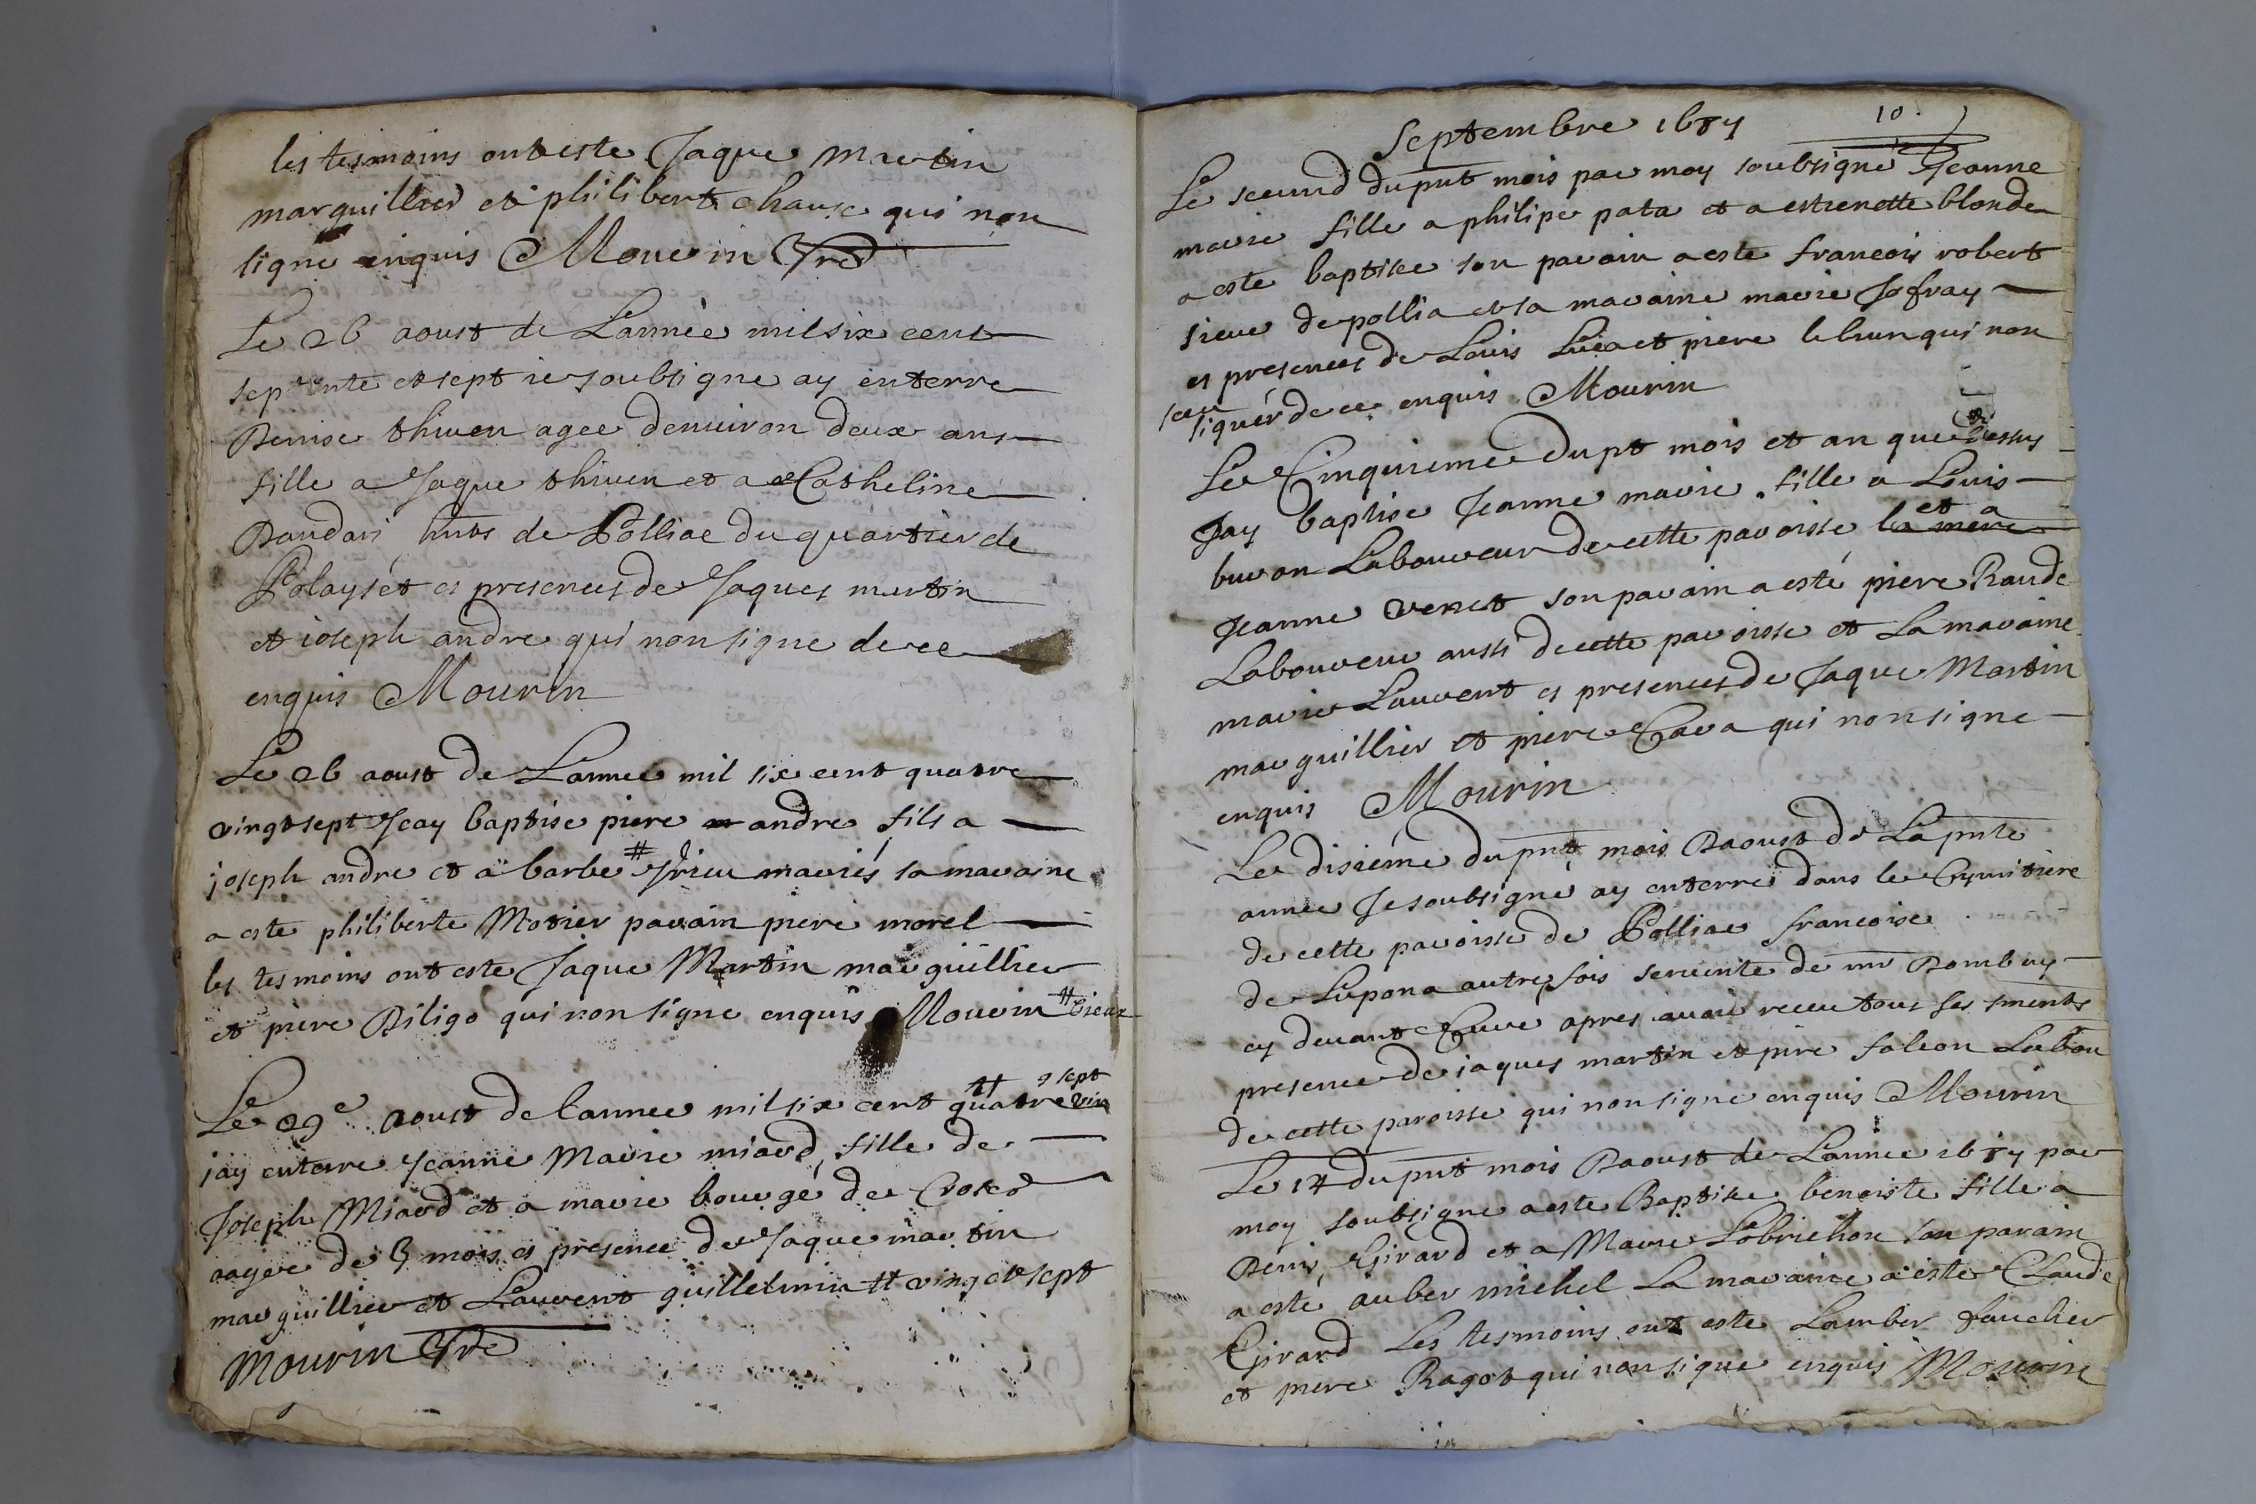 les tesmoins ont este Jaque martin
marguillier et philibert chanse qui non
signe enquis Mourin
Le 26 aoust de Lannée mil six cent
septente et sept ie soubsigne ay enterre
Denise thiven agee denuiron deux ans
fille a Jaque thiven et a Catheline
Dandari hnts de Polliac du quartier de
et es presences de Jaques martin
et ioseph andre qui non signe de ce
enquis Mourin
Le 26 aoust de Lannee mil six cent quatre
vingt sept Jeay baptise piere andre fils a
joseph andre et a barbe # mariés sa maraine
a este philiberte Morier parain piere morel
les tesmoins ont este Jaque Martin marguillier
et piere Diligo qui non signe enquis Mourin #
Le 29e aoust de lannee mil six cent quatre vin
sept
jay enterre Jeanne Marie miard fille de
Joseph Miard et a marie bourgé de
aagee de mois es presence de Jaque martin
marguillier et Laurent guillelmin # vingt et sept
Mourin
10
Septembre 1687
Le second du pnt mois par moy soubsigne Jeanne
marie fille a philipe pata et a estienette blonde
a este baptisee son parain a este francois robert
sieur de pollia et sa maraine marie Jofray
es presences de Louis et piere lebrun qui non
sceu
signer de ce enquis Mourin
Le Cinquieme du pt mois et an que dessus
Jay baptise Jeanne marie fille a Louis
buron Laboureur de cette paroisse la mere
et a
Jeanne veret son parain a esté piere Rande
Laboureur aussi de cette paroisse et La maraine
marie Laurent es presences de Jaque Martin
marguillier et piere Cara qui non signe
enquis Mourin
Le disiéme du pnt mois Daoust de La pnte
annee Je soubsigné ay enterré dans le Cymitiere
de cette paroisse de Polliac francoise
de Lupona autresfois seruente de mr Dombey
cy deuant Cure apres auoir receu tous ses sments
presence de iaques martin et pire falcon Labou
de cette paroisse qui non signe enquis Mourin
Le 14 du pnt mois Daoust de Lannee 1687 par
moy soubsigne a este Baptisee benoiste fille a
Denis Girard et a Marie Lobrichon son parain
a este auber michel La maraine a este Claude
Girard Les tesmoins ont este Lamber fauchier
et piere Ragot qui non signe enquis Mourin